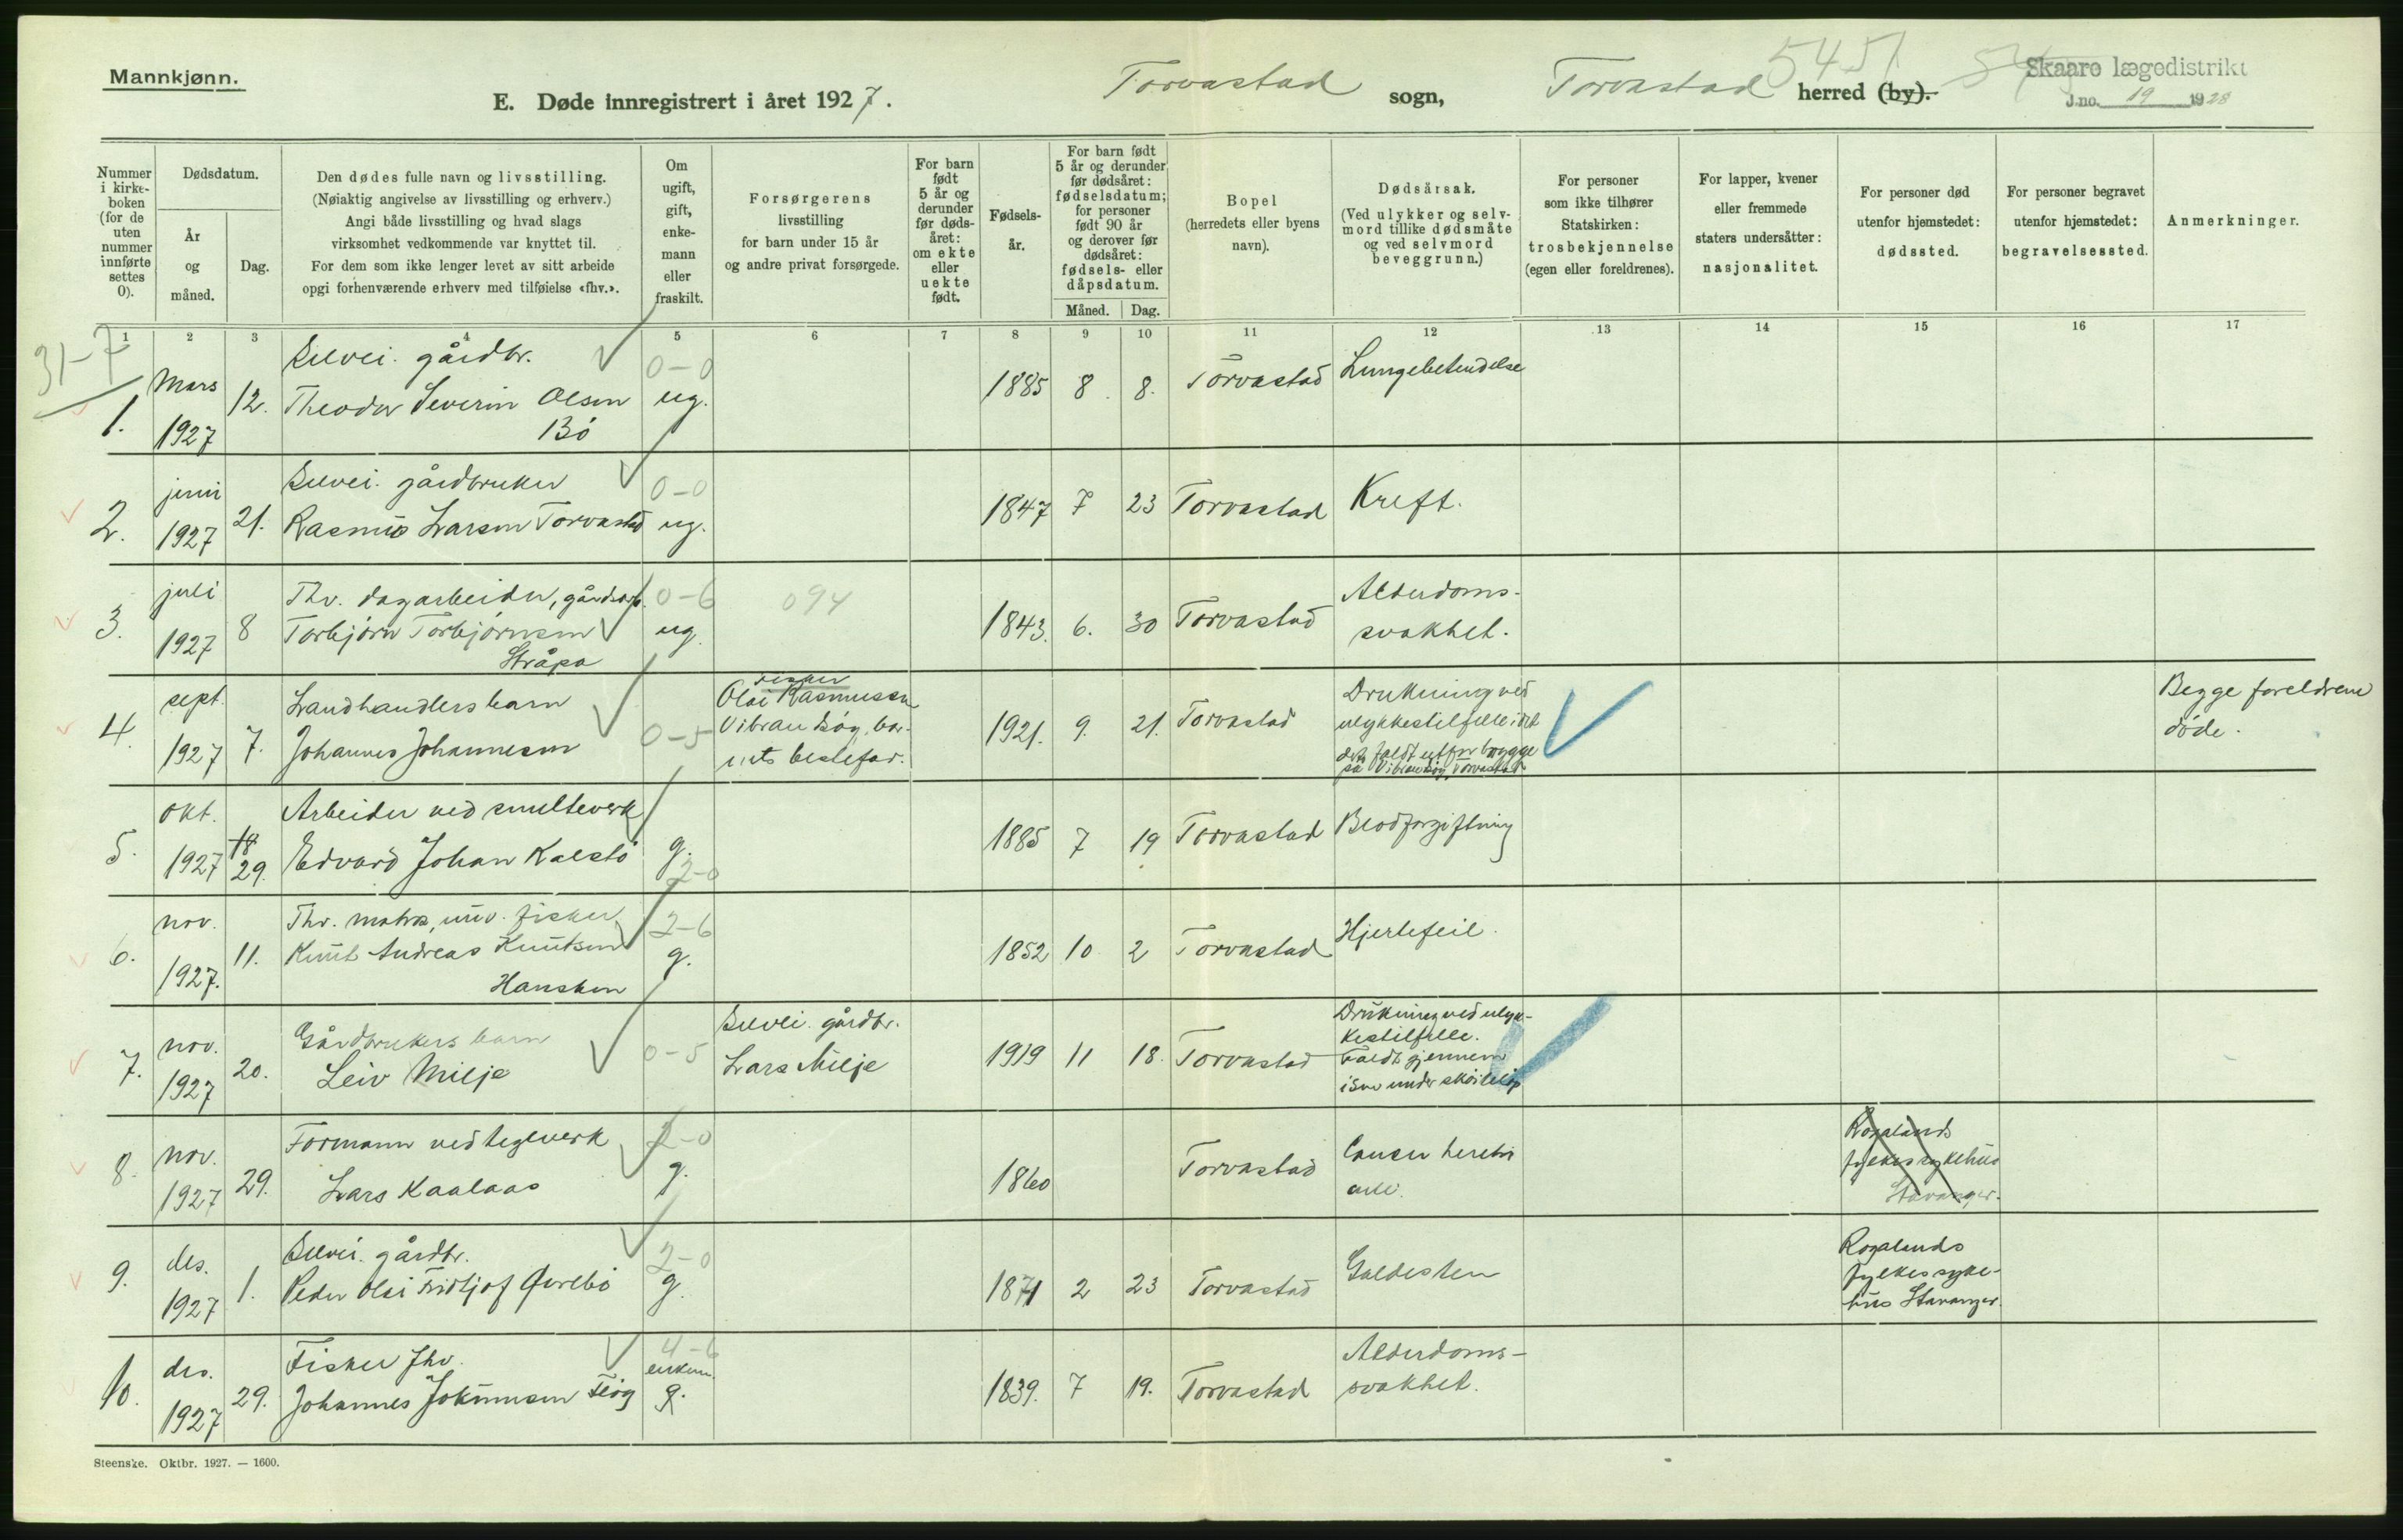 Mannkjønn.
E. Døde innregistrert i året 1927.
Torvastad sogn,
Torvastad herred (by).
5451
Skaare lægedistrikt
J.no. 19 1928
Nummer i kirke-boken (for de uten nummer innførte settes 0).
Dødsdatum.
År og måned.
Dag.
Den dødes fulle navn og livsstilling.
(Nøiaktig angivelse av livsstilling og erhverv.)
Angi både livsstilling og hvad slags
virksomhet vedkommende var knyttet til.
For dem som ikke lenger levet av sitt arbeide
opgi forhenværende erhverv med tilføielse «fhv.».
Om ugift, gift, enke-mann eller fraskilt.
Forsørgerens
livsstilling
for barn under 15 år
og andre privat forsørgede.
For barn født 5 år og derunder før døds-året: om ekte eller uekte født.
Fødsels-år.
For barn født 5 år og derunder før dødsåret: fødselsdatum; for personer født 90 år og derover før dødsåret: fødsels- eller dåpsdatum.
Måned.
Dag.
Bopel
(herredets eller byens navn).
Dødsårsak.
(Ved ulykker og selv-mord tillike dødsmåte og ved selvmord beveggrunn.)
For personer som ikke tilhører Statskirken: trosbekjennelse (egen eller foreldrenes).
For lapper, kvener eller fremmede staters undersåtter: nasjonalitet.
For personer død utenfor hjemstedet: dødssted.
For personer begravet utenfor hjemstedet: begravelsessted.
Anmerkninger.
1 2 3 4 5 6 7 8 9 10 11 12 13 14 15 16 17
31-7
Selvei. gårdbr. 0-0
1. Mars 1927 12. Theodor Severin Olsen Bö ug. 1885 8. 8. Torvastad Lungebetendelse
Selvei. gårdbruker 0-0
2. juni 1927 21. Rasmus Larsen Torvastad ug. 1847 7 23 Torvastad Kreft.
Fhv. dagarbeider, gårdsarb. 0-6 094
3. juli 1927 8 Torbjørn Torbjørnsen Stråpa ug. 1843. 6. 30 Torvastad Alderdoms-
svakhet.
Landhandlers barn
4. sept. 1927 7. Johannes Johannesen 0-5
fisker
Olai Rasmussen
Vibrandsøy, bar-
nets bestefar.
1921. 9. 21. Torvastad
Drukning ved
ulykkestilfelle idet
det faldt utfor brygge
på Vibrandsøy, Torvastad
Begge foreldrene
døde.
Arbeider ved smelteverk
5. okt. 1927 18 29. Edvard Johan Kalstø g. 2-0 1885 7 19 Torvastad Blodforgiftning
Fhv. matros, fisker 2-6
6. nov. 1927. 11. Knut Andreas Knutsen Hansken g. 1852 10 2 Torvastad Hjertefeil.
Gårdbrukers barn
7. nov. 1927 20. Leiv Milje 0-5
Selvei. gårdbr.
Lars Milje
1919 11 18. Torvastad
Drukning ved ulyk-
kestilfelle.
Faldt gjennem
isen under skøiteløp
Formann ved teglverk 2-0
8. nov. 1927 29. Lars Kaalaas g. 1860 Torvastad Cancer
Rogalands
fylkessykehus
Stavanger.
Selvei. gårdbr. 2-0
9. des. 1927 1. Peder Olai Fridtjof g. 1871 2 23 Torvastad Galdesten
Rogalands
fylkessyke-
hus Stavanger.
Fisker fhv. 4-6
10. des. 1927 29. Johannes enkem. g. 1839. 7 19. Torvastad Alderdoms-
svakhet.
Steenske. Oktbr. 1927. — 1600.